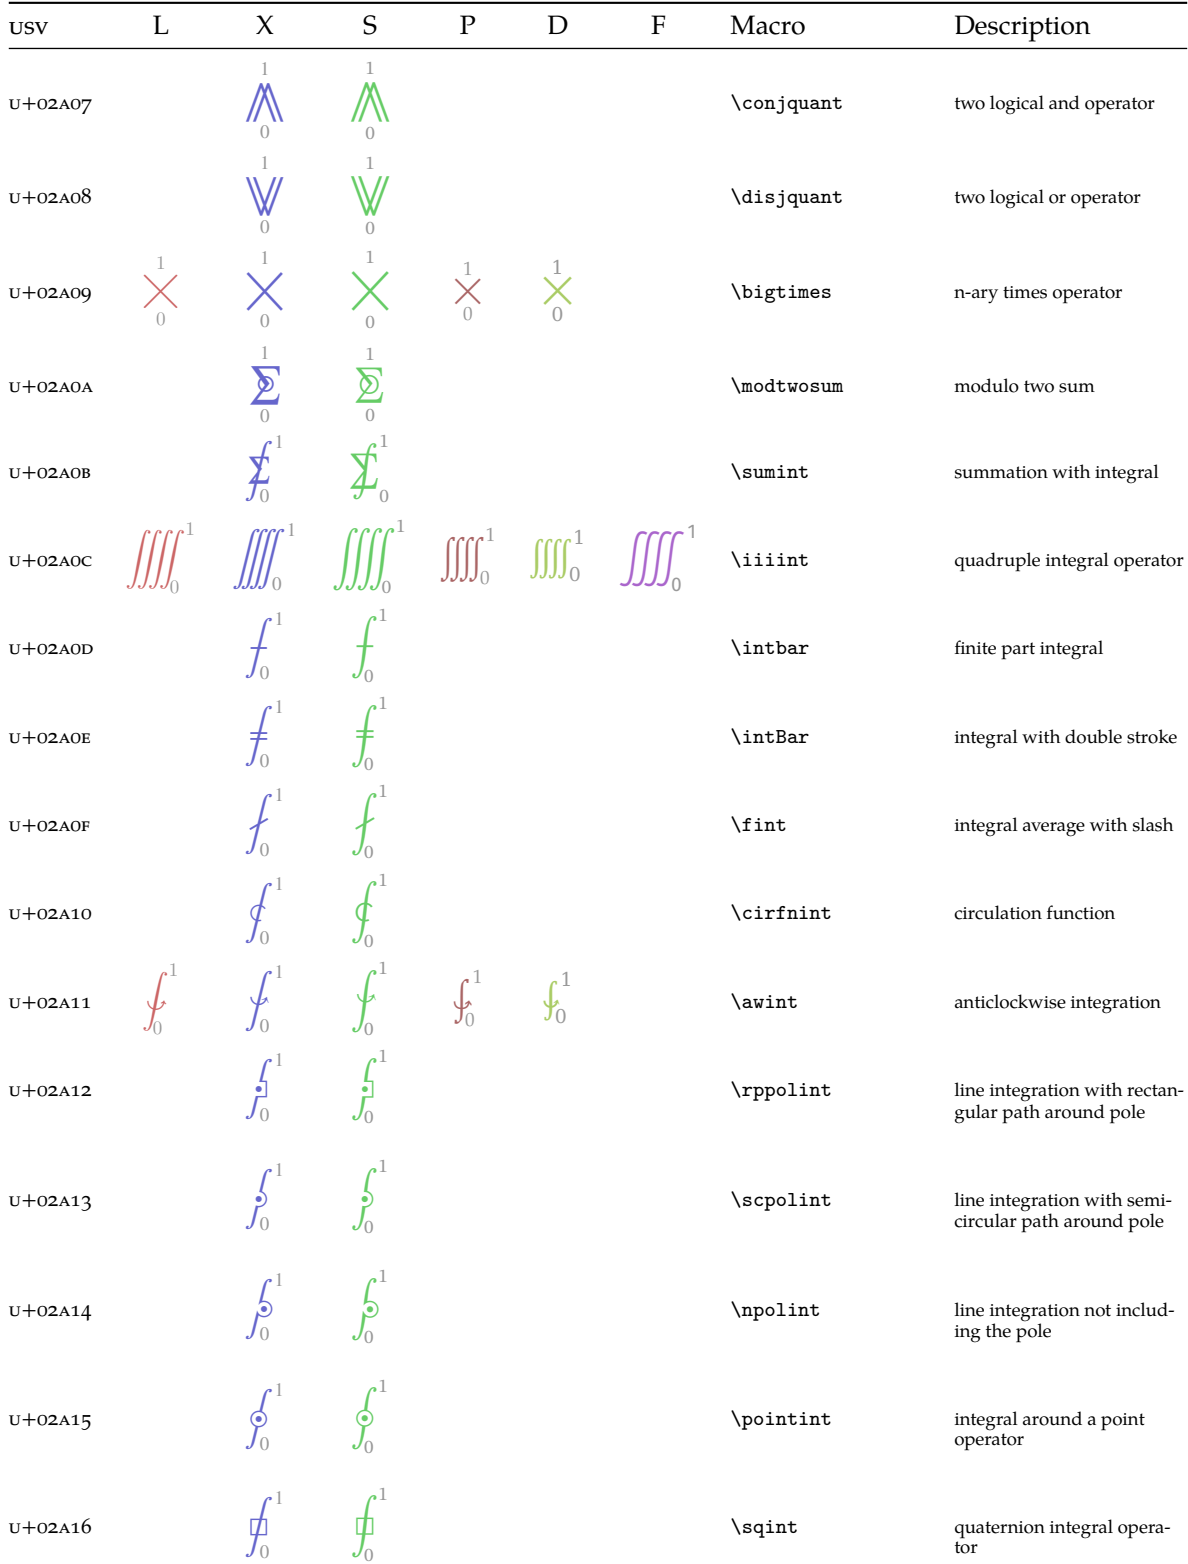 USV L X S P D F Macro Description
U+02A07 ⨇ 1 0 ⨇ 1 0 \conjquant two logical and operator
U+02A08 ⨈ 1 0 ⨈ 1 0 \disjquant two logical or operator
U+02A09 ⨉ 1 0 ⨉ 1 0 ⨉ 1 0 ⨉ 1 0 ⨉ 1 0 \bigtimes n-ary times operator
U+02A0A ⨊ 1 0 ⨊ 1 0 \modtwosum modulo two sum
U+02A0B ⨋ 1 0 ⨋ 1 0 \sumint summation with integral
U+02A0C ⨌ 1 0 ⨌ 1 0 ⨌ 1 0 ⨌ 1 0 ⨌ 1 0 ⨌ 1 0 \iiiint quadruple integral operator
U+02A0D ⨍ 1 0 ⨍ 1 0 \intbar finite part integral
U+02A0E ⨎ 1 0 ⨎ 1 0 \intBar integral with double stroke
U+02A0F ⨏ 1 0 ⨏ 1 0 \fint integral average with slash
U+02A10 ⨐ 1 0 ⨐ 1 0 \cirfnint circulation function
U+02A11 ⨑ 1 0 ⨑ 1 0 ⨑ 1 0 ⨑ 1 0 ⨑ 1 0 \awint anticlockwise integration
U+02A12 ⨒ 1 0 ⨒ 1 0 \rppolint line integration with rectan-
gular path around pole
U+02A13 ⨓ 1 0 ⨓ 1 0 \scpolint line integration with semi-
circular path around pole
U+02A14 ⨔ 1 0 ⨔ 1 0 \npolint line integration not includ-
ing the pole
U+02A15 ⨕ 1 0 ⨕ 1 0 \pointint integral around a point
operator
U+02A16 ⨖ 1 0 ⨖ 1 0 \sqint quaternion integral opera-
tor